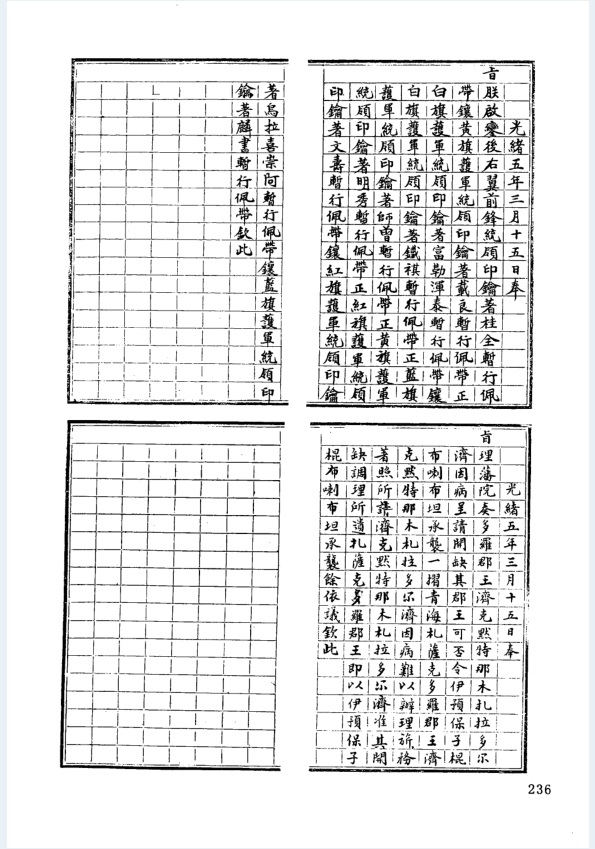 光緒五年三月十五日奉
旨朕啟鑾後右翼前鋒統領印鑰著桂全暫行佩
帶鑲黃旗護軍統領印鑰著載良暫行佩帶正
白旗護軍統領印鑰著富勒渾泰暫行佩帶鑲
白旗護軍統領印鑰著鐵祺暫行佩帶正藍旗
護軍統領印鑰著師曾暫行佩帶正黃旗護軍
統領印鑰著明秀暫行佩帶正紅旗護軍統領
印鑰著文壽暫行佩帶鑲紅旗護軍統領印鑰
著烏拉喜崇阿暫行佩帶鑲藍旗護軍統領印
鑰著麟書暫行佩帶欽此
光緒五年三月十五日奉
旨理藩院奏多羅郡王克默特那木扎拉多尔
濟因病呈請開缺其郡王可否令伊預保子棍
布喇布坦承襲一摺青海札薩克多羅郡王濟
克默特那木札拉多尔濟因病難以辦理旂務
著照所請濟克默特那木札拉多尔濟准其開
缺調理所遺扎薩克多羅郡王即以伊預保子
棍布喇布坦承襲餘依議欽此
236